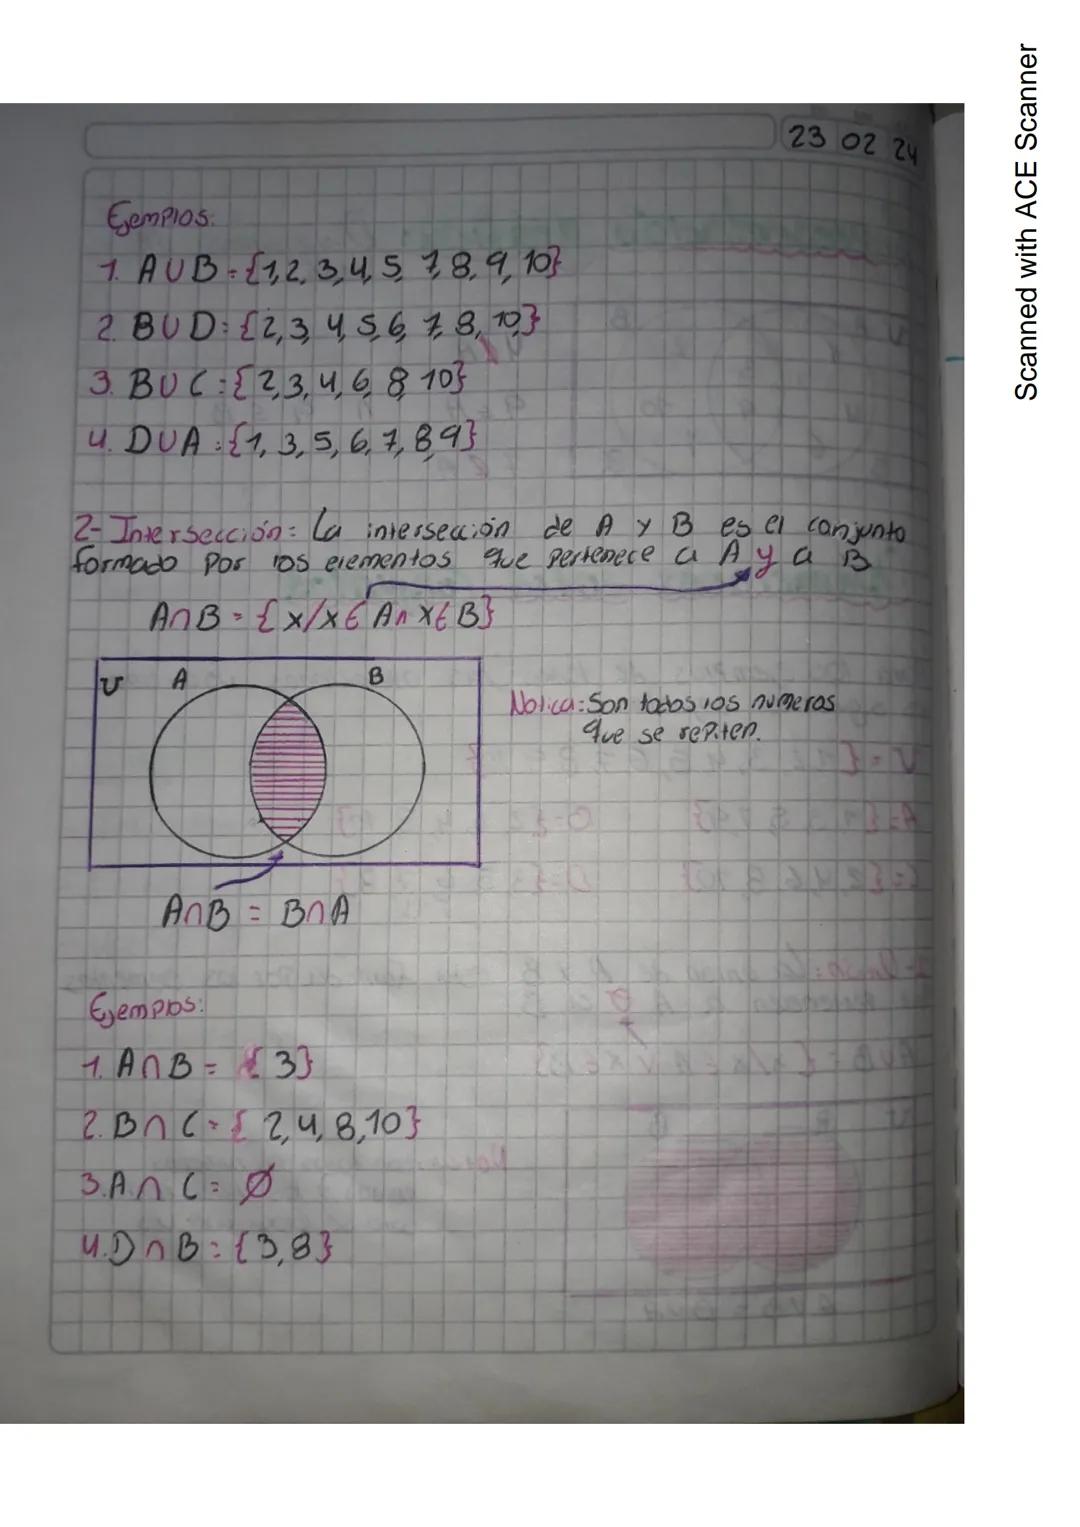 23 02 24
Ejemplos:
1. A∪B={1,2,3,4,5,7,8,9,10}
2. B∪D:{2,3,4,5,6,7,8,10,}
3. B∪C:{2,3,4,6,8 10}
4. D∪A:{1,3,5,6,7,8,9}
2- Intersección: La intersección de A y B es el conjunto
formado por los elementos que pertenece a A y a B
A∩B={x/x∈A∩x∈B}
U A B
Notica: Son todos los numeros
que se repiten.
A∩B = B∩A
Ejemplos:
1. A∩B = {3}
2. B∩C={2,4,8,10}
3. A∩C= Ø
4. D∩B:{3,8}
Scanned with ACE Scanner